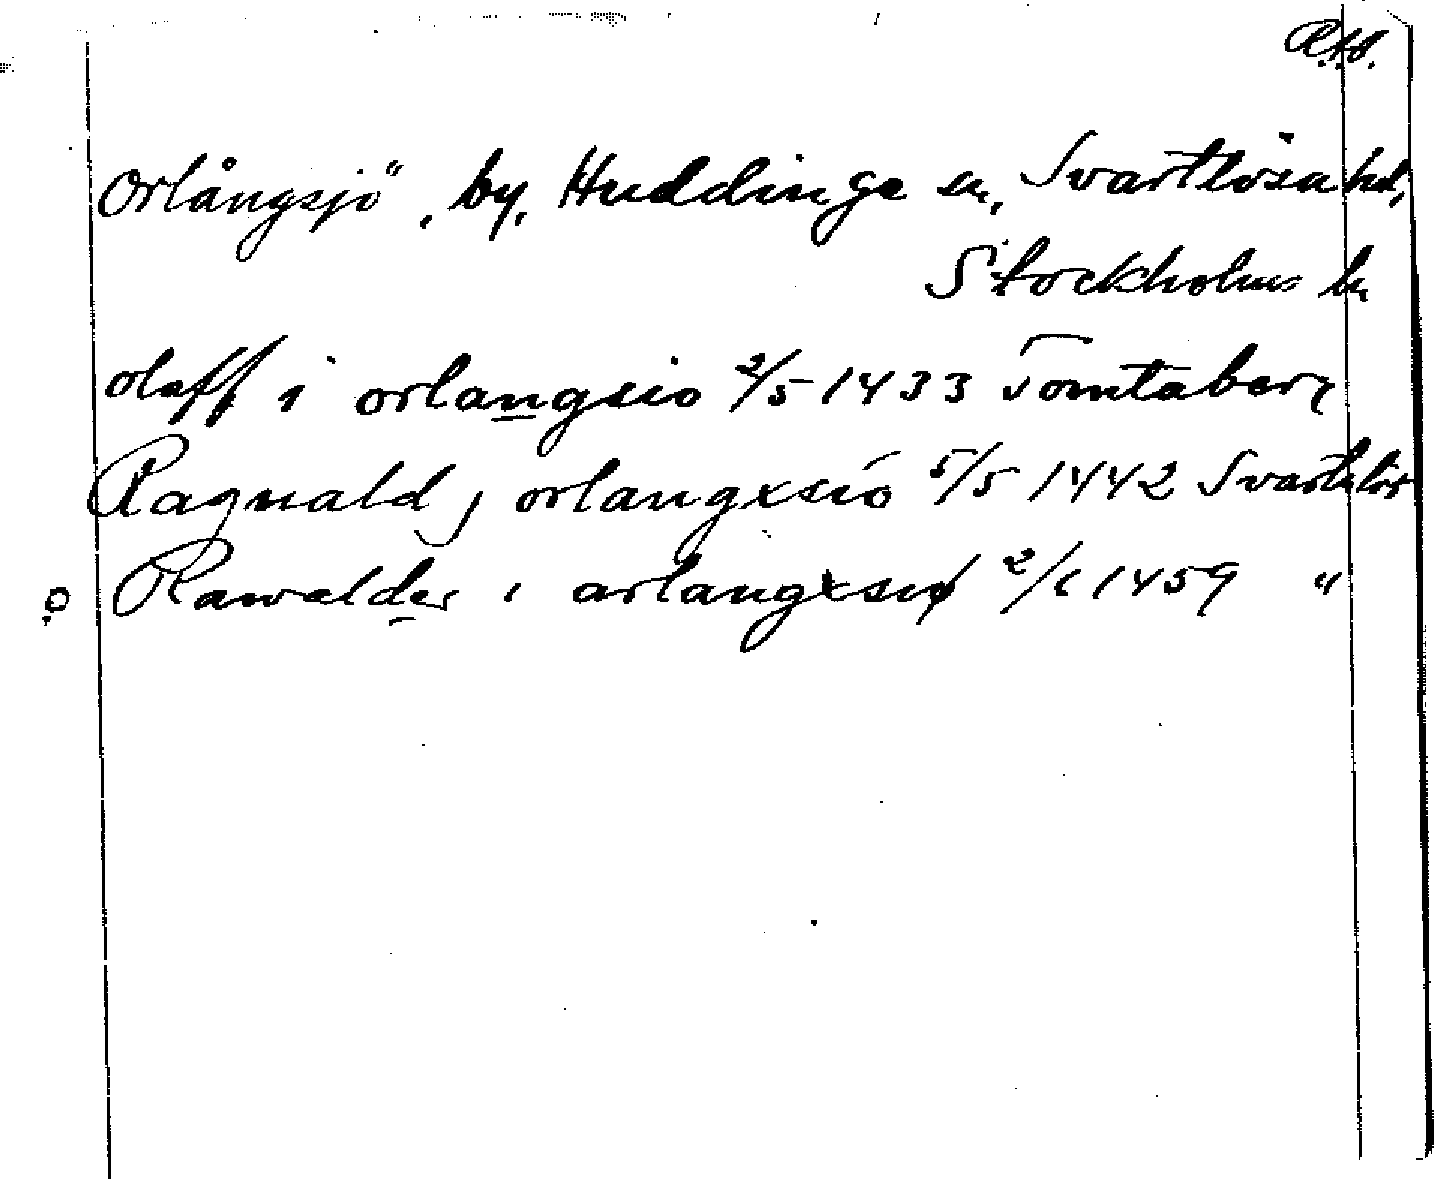 R.A.
Orlångsjö, by, Huddinge sn, Svartlösa hd,
Stockholms ln
olaff i orlangsio 2/5 1433 Tomtaberg
Ragnald j orlangxsio 5/5 1442 Svartlös
Rawalder i arlangxsiø 2/6 1459 "